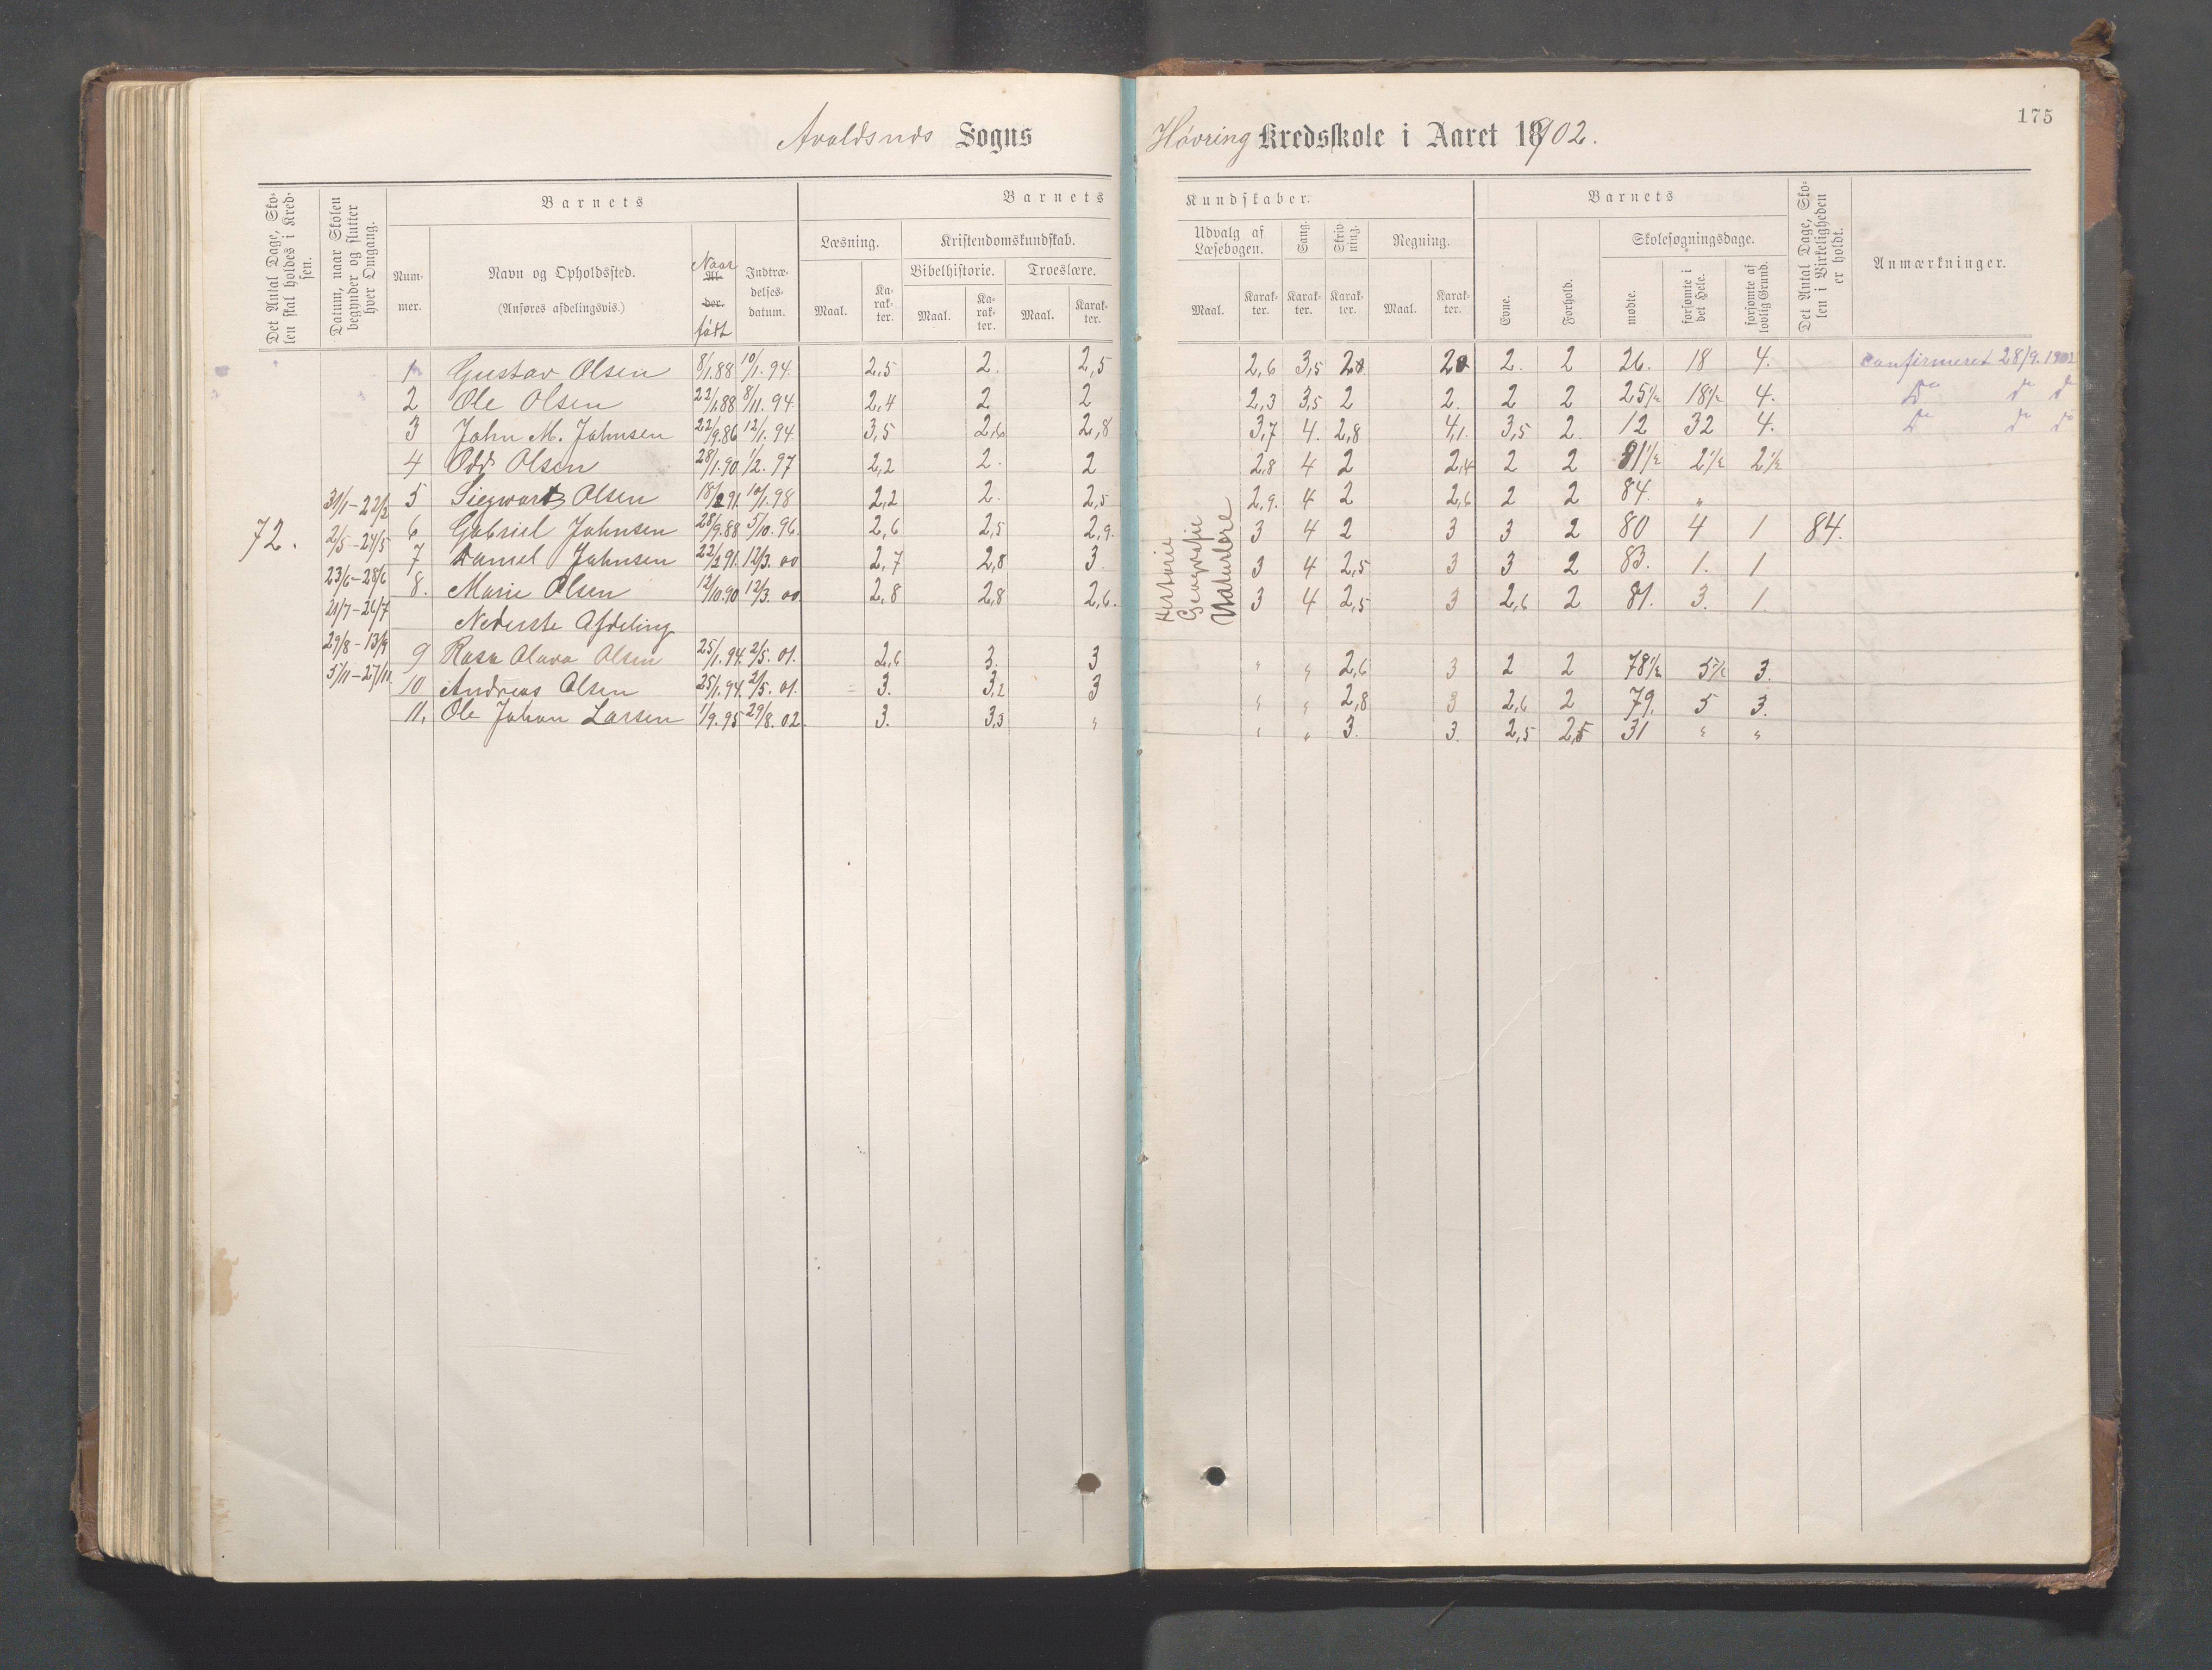 175
Avaldsnes Sogns Høvring Kredsskole i Aaret 1902.
Det Antal Dage, Skolen skal holdes i Kredsen.
Datum, naar Skolen begynder og slutter hver Omgang.
Barnets
Nummer.
Navn og Opholdssted.
(Anføres afdelingsvis.)
Naar
Alder.
født
Indtrædelsesdatum.
Barnets Kundskaber.
Læsning.
Maal.
Karakter.
Kristendomskundskab.
Bibelhistorie.
Maal.
Karakter.
Troeslære.
Maal.
Karakter.
Udvalg af Læsebogen.
Maal.
Karakter.
Sang.
Karakter.
Skrivning.
Karakter.
Regning.
Maal.
Karakter.
Barnets
Evne.
Forhold.
Skolesøgningsdage.
mødte.
forsømte i det Hele.
forsømte af lovlig Grund.
Det Antal Dage, Skolen i Virkeligheden er holdt.
Anmærkninger.
1 Gustav Olsen 8/1.88 10/1.94. 2,5 2. 2,5 2,6 3,5 2 2 2. 2 26. 18 4. Confirmeret 28/9.1902
2 Ole Olsen 22/1.88 8/11.94. 2,4 2 2 2,3 3,5 2 2. 2 2 25½ 18½ 4. Do do do
3 John M. Johnsen 22/9.86 12/1.94. 3,5 2,6 2,8 3,7 4. 2,8 4,1. 3,5 2. 12 32 4. Do do do
4 Odd Olsen 28/1.90 1/2.97 2,2 2. 2 2,8 4 2 2,4 2 2 81½ 2½ 2½
31/1-22/2 5 Siegwart Olsen 18/2 91. 10/1.98 2,2 2. 2,5 2,9. 4 2 2,6 2 2 84. „
72. 2/5-24/5 6 Gabriel Johnsen 28/9.88 5/10.96. 2,6 2,5 2,9. 3 4 2 3 3 2 80 4 1 84.
23/6-28/6 7 Daniel Johnsen 22/2 91. 12/3.00 2,7 2,8 3. 3 4 2,5 3 3 2 83. 1. 1
21/7-26/7 8. Marie Olsen 12/10.90 12/3.00. 2,8 2,8 2,6. 3 4 2,5 3 2,6 2 81. 3. 1.
Historie
Geografie
Naturlære
Nederste Afdeling
29/8-13/9 9 Rasa Olava Olsen 25/1.94. 2/5.01. 2,6 3. 3 „ „ 2,6 3 2 2 78½ 5½ 3.
5/11-27/11. 10 Andreas Olsen 25/1.94. 2/5.01. 3. 3,2 3 „ „ 2,8 3 2,6 2 79. 5 3.
11. Ole Johan Larsen 1/9.95 29/8.02. 3. 3,3 „ „ „ 3. 3. 2,5 2,5 31 „ „